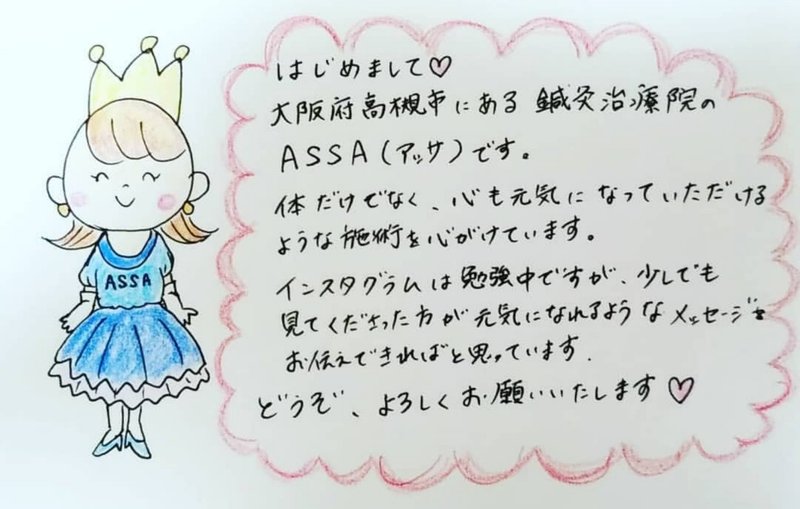 はじめまして♡
大阪府高槻市にある鍼灸治療院の
ASSA(アッサ)です。
体だけでなく、心も元気になっていただける
ような施術を心がけています。
インスタグラムは勉強中ですが、少しでも
見てくださった方が元気になれるようなメッセージを
お伝えできればと思っています.
どうぞ、よろしくお願いいたします♡
ASSA